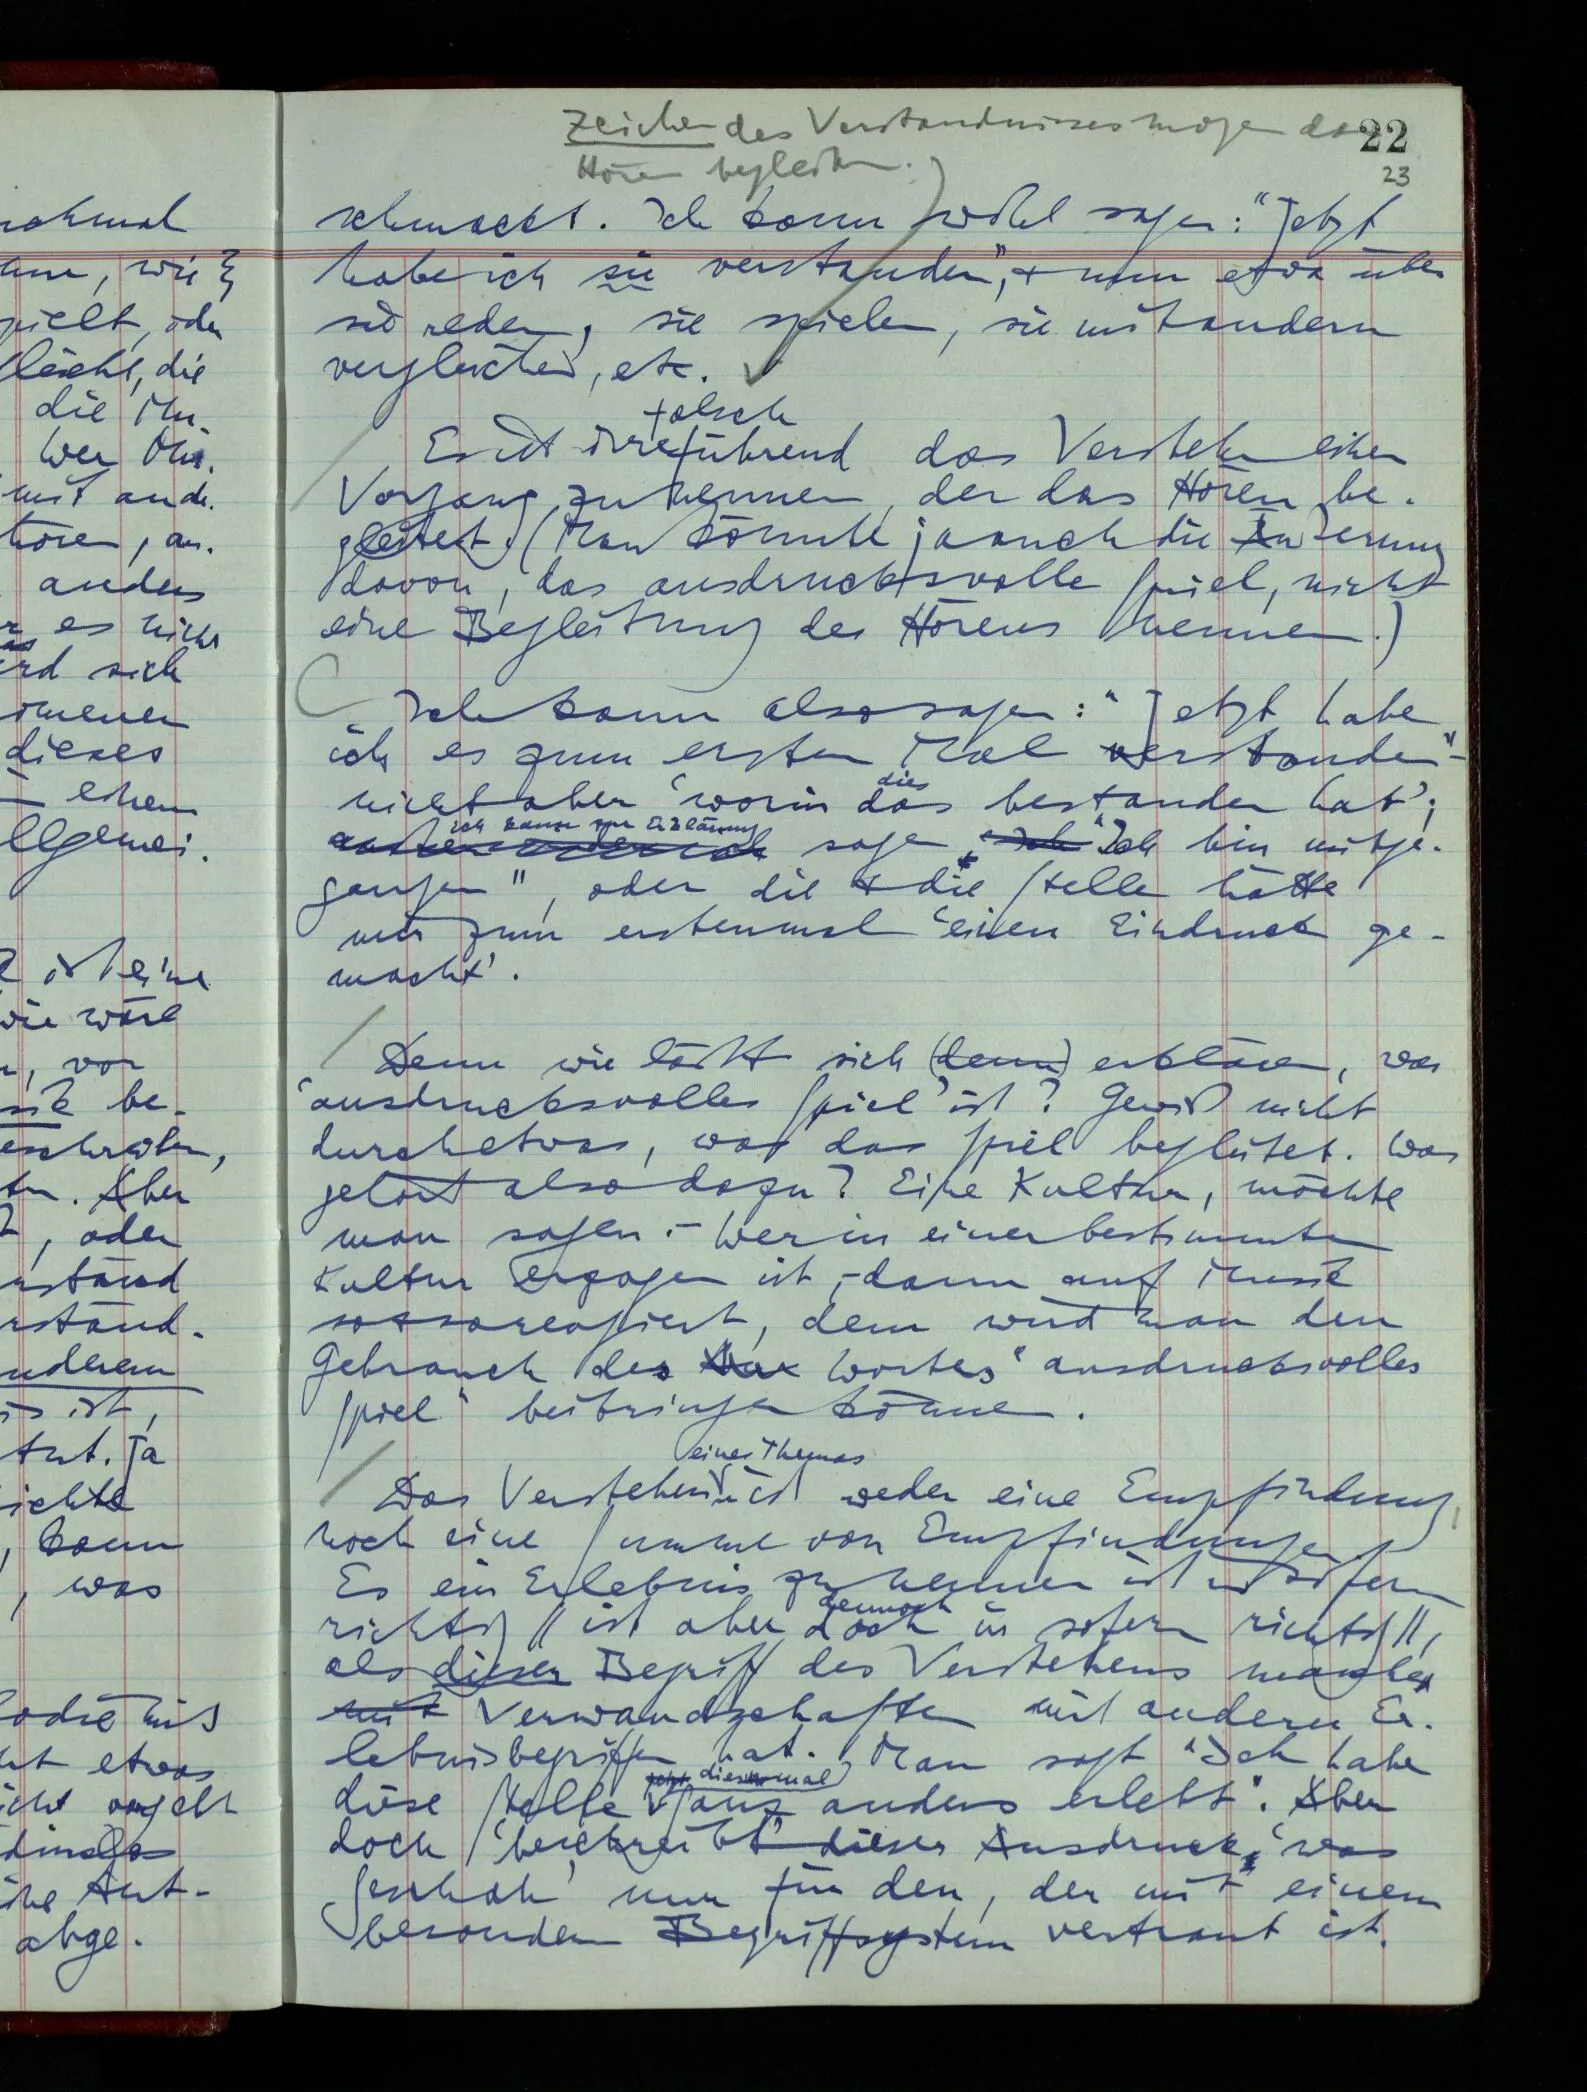 Zeichen des Verständnisses mögen das
22
Hören begleiten.)
23
schmackt. Ich kann wohl sagen: "Jetzt
habe ich sie verstanden", + nun etwa über
sie reden, sie spielen, sie mit andern
vergleichen, etc.
falsch
Es ist irreführend das Verstehen einen
Vorgang zu nennen, der das Hören be-
gleitet. (Man könnte ja auch die Äußerung
davon, das ausdrucksvolle Spiel, nicht
eine Begleitung des Hörens nennen.)
Ich kann also sagen: "Jetzt habe
ich es zum ersten Mal verstanden" –
dies
nicht aber 'worin das bestanden hat';
ich kann zur Erklärung
sagen "Ich bin mitge-
gangen", oder die + die Stelle hätte
mir zum erstenmal 'einen Eindruck ge-
macht'.
Denn wie läßt sich (denn) erklären, was
'ausdrucksvolles Spiel' ist? Gewiß nicht
durch etwas, was das Spiel begleitet. Was
gehört also dazu? Eine Kultur, möchte
man sagen. – Wer in einer bestimmten
Kultur erzogen ist, – dann auf Musik
so + so reagiert, dem wird man den
Gebrauch des Wortes "ausdrucksvolles
Spiel" beibringen können.
eines Themas
Das Verstehen ist weder eine Empfindung,
noch eine Summe von Empfindungen.
Es ein Erlebnis zu nennen ist insofern
dennoch
richtig // ist aber doch in sofern richtig //,
als dieser Begriff des Verstehens manche
mit Verwandschaften mit andern Er-
lebnisbegriffen hat. Man sagt "Ich habe
jetzt diesmal
diese Stelle ganz anders erlebt". Aber
doch 'beschreibt' dieser Ausdruck 'was
geschah' nur für den, der mit einem
besondern Begriffsystem vertraut ist.